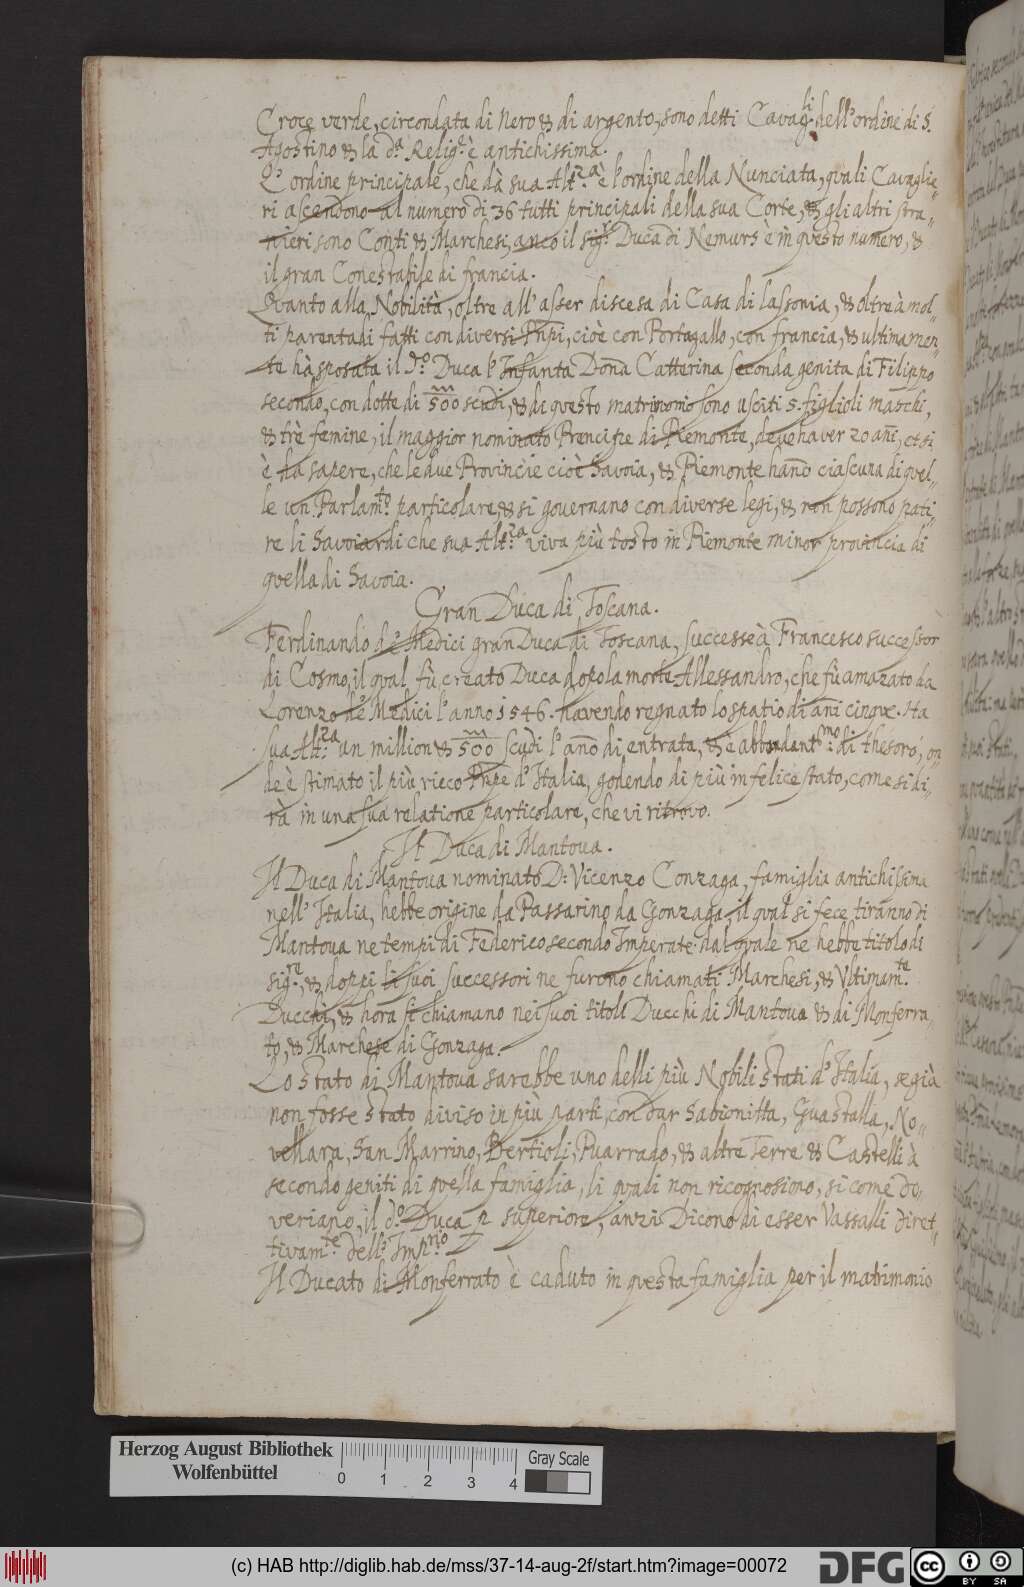 Croce verde, circondata di Nero & di argento, sono detti Cavag.li dell'ordine di S.
Agostino & la d.a Relig.e è antichissima.
L'ordine principale, che dà sua Alt.za è l'ordine della Nunciata, quali Cavaglie„
ri ascendono al numero di 36 tutti principali della sua Corte, & gli altri stra„
nieri sono Conti & Marchesi, anco il sig.r Duca di Nemurs è in questo numero, &
il gran Conestabile di francia.
Quanto alla Nobilità, oltre all'asser discesa di Casa di Sassonia, & oltre à mol„
ti parentadi fatti con diversi Pnpi, cioè con Portogallo, con francia, & ultimamen„
te hà sposata il d.o Duca l'Infanta Doña Catterina seconda genita di Filippo
secondo, con dotte di 500 scudi, & da questo matrimonio sono usciti 5. figlioli maschi,
& trè femine, il maggior nominato Prencipe di Piemonte, deve haver 20 añi, et si
è da sapere, che le due Provincie cioè Savoia, & Piemonte hanō ciascuna di quel„
le un Parlam.to particolare & si governano con diverse legi, & non possono pati„
re li Savoiardi che sua Alt.za viva più tosto in Piemonte minor provincia di
quella di Savoia.
Gran Duca di Toscana.
Ferdinando de' Medici gran Duca di Toscana, successe à Francesco successor
di Cosmo, il qual fù creato Duca dopo la morte Allessandro, che fù amazato da
Lorenzo de' Medici l'anno 1546. havendo regnato lo spatio di añi cinque. Ha
sua Alt.za un million & 500 scudi l'año di entrata, & è abbondant.mo di thesoro, on„
de è stimato il più ricco Pnpe d'Italia, godendo di più in felice stato, come si di„
rà in una sua relatione particolare, che vi ritrovo.
Il Duca di Mantova.
Il Duca di Mantova nominato D: Vicenzo Conzaga, famiglia antichissima
nell'Italia, hebbe origine da Passarino da Gonzaga, il qual si fece tiranno di
Mantova ne tempi di Federico secondo Imperate: dal quale ne hebbe titolo di
sig.re, & doppi li suoi successori ne furono chiamati Marchesi, & Vltimam.te
Ducchi, & hora si chiamano nei suoi titoli Ducchi di Mantova & di Monferra„
to, & Marchese di Gonzaga.
Lo stato di Mantova sarebbe uno delli più Nobili stati d'Italia, se già
non fosse stato diviso in più parti, con dar Sabionitta, Guastalla, No„
vellara, San Marrino, Bertioli, Puarrado, & altre Terre & Castelli à
secondo geniti di quella famiglia, li quali non ricognosiono, si come do„
veriano, il d.o Duca p superiore, anzi Dicono di esser Vassalli diret„
tivam.te dell'Imp.rio
Il Ducato di Monferrato è caduto in questa famiglia per il matrimonio
Herzog August Bibliothek
Wolfenbüttel
0 1 2 3 4
Gray Scale
(c) HAB http://diglib.hab.de/mss/37-14-aug-2f/start.htm?image=00072
DFG
cc BY SA